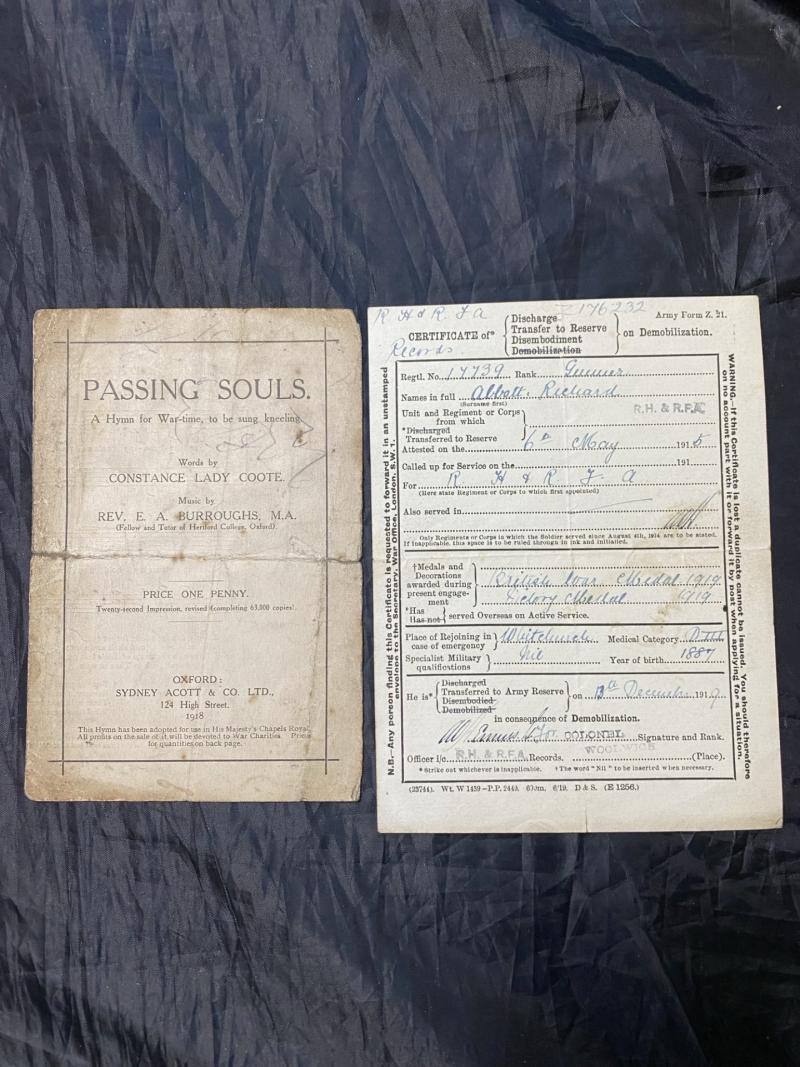 PASSING SOULS.
A Hymn for War-time, to be sung kneeling.
Words by
CONSTANCE LADY COOTE.
Music by
REV. E. A. BURROUGHS, M.A.
(Fellow and Tutor of Hertford College, Oxford).
PRICE ONE PENNY.
Twenty-second Impression, revised (completing 63,000 copies)
OXFORD:
SYDNEY ACOTT & CO. LTD.,
124 High Street.
1918
This Hymn has been adopted for use in His Majesty's Chapels Royal.
All profits on the sale of it will be devoted to War Charities. Prices
for quantities on back page.
R H & R F A
Records
176232
Army Form Z. 21.
CERTIFICATE of*
Discharge
Transfer to Reserve
Disembodiment
Demobilization
on Demobilization.
Regtl. No. 17739 Rank Gunner
Names in full Abbott. Richard
(Surname first)
Unit and Regiment or Corps
from which
R.H. & R.F.A.
*Discharged
Transferred to Reserve
Attested on the 6th May 1915
Called up for Service on the 191
For R H & R F A
(Here state Regiment or Corps to which first appointed)
Also served in
Only Regiments or Corps in which the Soldier served since August 4th, 1914 are to be stated.
If inapplicable, this space is to be ruled through in ink and initialled.
†Medals and
Decorations
awarded during
present engage-
ment
British War Medal 1919
Victory Medal 1919
*Has
Has not
served Overseas on Active Service.
Place of Rejoining in
case of emergency
Whitchurch
Medical Category
Specialist Military
qualifications
Nil
Year of birth 1887
He is*
Discharged
Transferred to Army Reserve
Disembodied
Demobilized
on December 1919
in consequence of Demobilization.
for COLONEL Signature and Rank.
Officer i/c R.H. & R.F.A. Records. WOOLWICH (Place).
* Strike out whichever is inapplicable. † The word "Nil" to be inserted when necessary.
(23744). Wt. W 1459–P.P. 2449. 6/19. D & S. (E 1256.)
N.B.—Any person finding this Certificate is requested to forward it in an unstamped
envelope to the Secretary, War Office, London, S.W. 1.
WARNING.—If this Certificate is lost a duplicate cannot be issued. You should therefore
on no account part with it or forward it by post when applying for a situation.